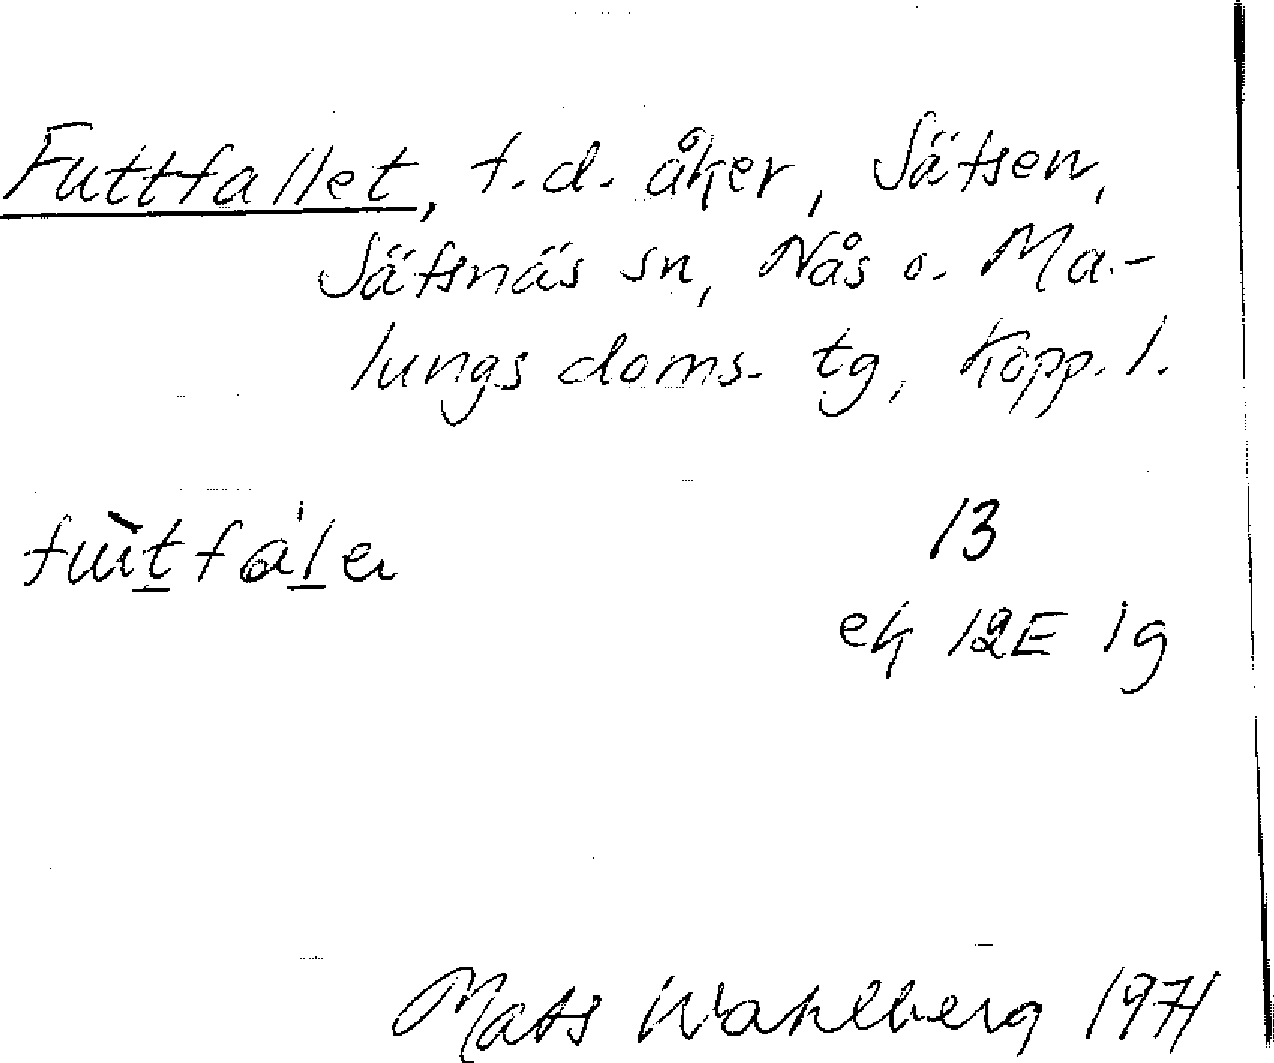 Futtfallet, f.d. åker, Sätsen,
Jätsnäs sn, Nås o. Ma-
lungs doms. tg, Kopp. l.
13
ek 12E 1g
Mats Wahlberg 1971